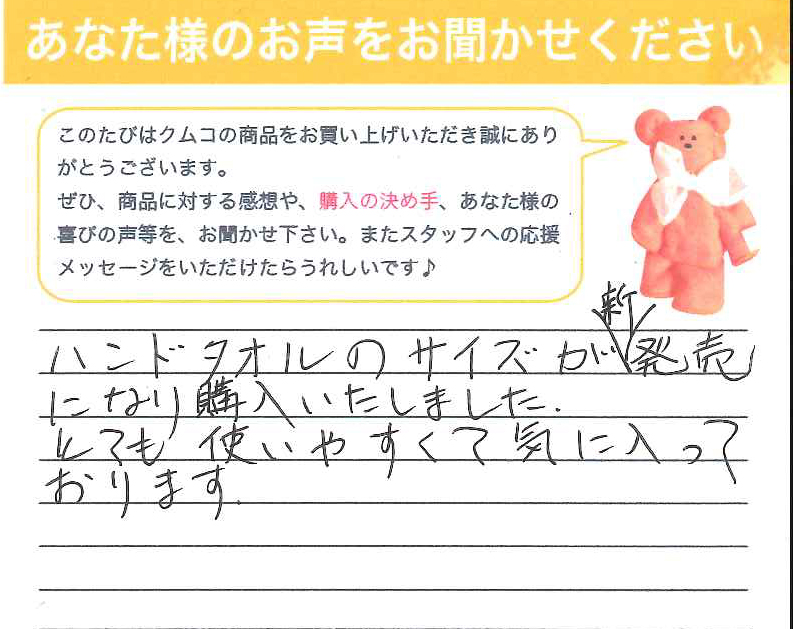 あなた様のお声をお聞かせください
このたびはクムコの商品をお買い上げいただき誠にあり
がとうございます。
ぜひ、商品に対する感想や、購入の決め手、あなた様の
喜びの声等を、お聞かせ下さい。またスタッフへの応援
メッセージをいただけたらうれしいです♪
ハンドタオルのサイズが新発売
になり購入いたしました.
とても使いやすくて気に入って
おります.